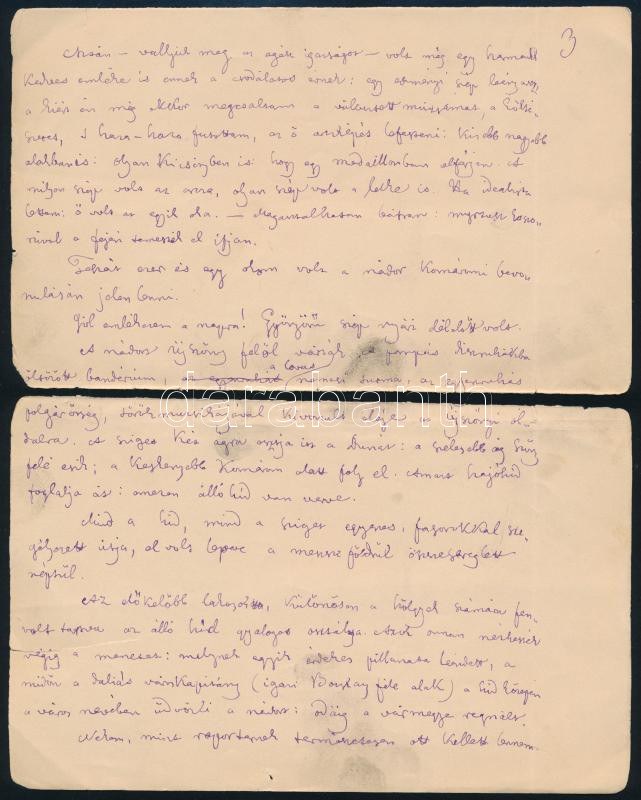 3
Aztán – valljuk meg az egész igazságot – volt még egy harmadik
Kedves emléke is ennek a csodálatos évnek: egy eszményi szép leány
a kiért én még akkor megcsaltam a választott múzsámat, a költé-
szetet, s haza-haza futottam, az ő arcképét lefesteni: kisebb nagyobb
alakban is: olyan kicsinyben is: hogy egy medaillonban elférjen. A
milyen szép volt az arca, olyan szép volt a lelke is. Ha idealista
lettem: ő volt az egyik oka. – Megvallhatom bátran: myrtus koszo-
rúval a fején temették el ifjan.
Tehát ezer és egy okom volt a nádor Komáromi bevo-
nulásán jelen lenni.
Jól emlékezem a napra! Gyönyörű szép nyári délelőtt volt.
A nádort Újszőny felől várták, a pompás díszruhákba
öltözött bandérium, a lovas nemesi turma, az egyenruhás
polgárőrség, török muzsikájával kivonult elébe a újszőnyi ol-
dalra. A sziget két ágra osztja itt a Dunát: a szélesebb ág Szőny
felé esik; a keskenyebb Komárom alatt foly el. Amazt hajóhíd
foglalja át: emezen álló híd van verve.
Mind a híd, mind a sziget egyenes, fasorokkal sze-
gélyezett útja, el volt lepve a messze földrül összesereglett
néptül.
Az előkelőbb lakosság, különösen a hölgyek számára fen-
volt tartva az álló híd gyalogos osztálya. Azok onnan nézhették
végig a menetet: melynek egyik érdekes pillanata leendett, a
midőn a daliás várkapitány (igazi Boray féle alak) a híd közepén
a város nevében üdvözli a nádort: odáig a vármegye regnált.
Nekem, mint reporternek természetesen ott kellett lennem.
darabanth